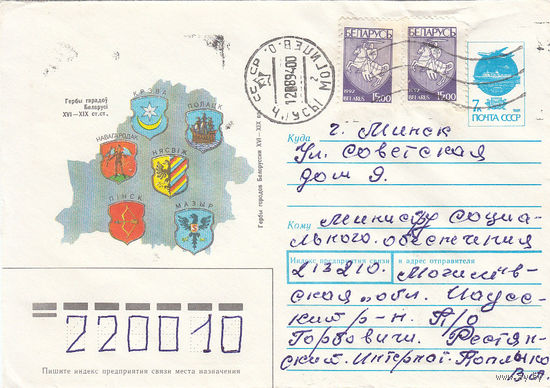 Гербы гарадоў
Беларусі
XVI – XIX ст.ст.
КРЭВА
ПОЛАЦК
НАВАГАРОДАК
НЯСВІЖ
ПІНСК
МАЗЫР
Гербы городов Белоруссии XVI – XIX вв.
СССР
БЕЛАРУСЬ
1992 BELARUS 15.00
БЕЛАРУСЬ
1992 BELARUS 15.00
7к
ПОЧТА СССР
Куда г. Минск
Ул. Советская
дом 9.
Кому Министру социа-
льного. обеспечения
Индекс предприятия связи и адрес отправителя
213210. Могилёв-
ская обл.
кий р-н. П/О
Горбовичи.
ский. Интернат.
220010
Пишите индекс предприятия связи места назначения